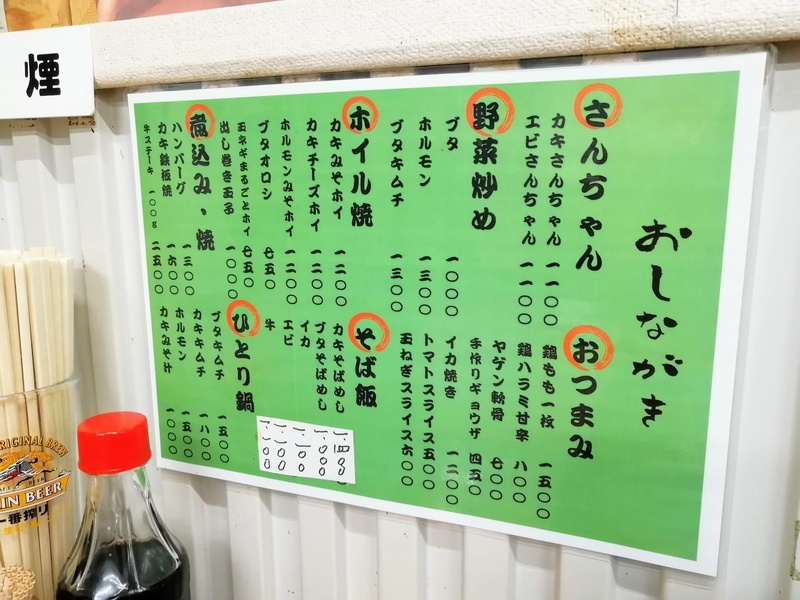 煙
おしながき
さんちゃん
カキさんちゃん 一一〇〇
エビさんちゃん 一一〇〇
野菜炒め
ブタ 一〇〇〇
ホルモン 一三〇〇
ブタキムチ 一三〇〇
ホイル焼
カキみそホイ 一二〇〇
カキチーズホイ 一二〇〇
ホルモンみそホイ 一二〇〇
ブタオロシ 七五〇
玉ネギまるごとホイ 七五〇
出し巻き玉子 一〇〇〇
煮込み、焼
ハンバーグ 一三〇〇
カキ鉄板焼 一六〇〇
牛ステーキ 一〇〇g 二五〇〇
おつまみ
鶏もも一枚 一五〇〇
鶏ハラミ甘辛 八〇〇
ヤゲン軟骨 七〇〇
手作りギョウザ 四五〇
イカ焼き 一二〇〇
トマトスライス 五〇〇
玉ねぎスライス 六〇〇
そば飯
カキそばめし 一.四〇〇
ブタそばめし
イカ
エビ
牛
ひとり鍋
ブタキムチ 一五〇〇
カキキムチ 一八〇〇
ホルモン 一五〇〇
カキみそ汁 一〇〇〇
ORIGINAL BREW
IN BEER
一番搾り